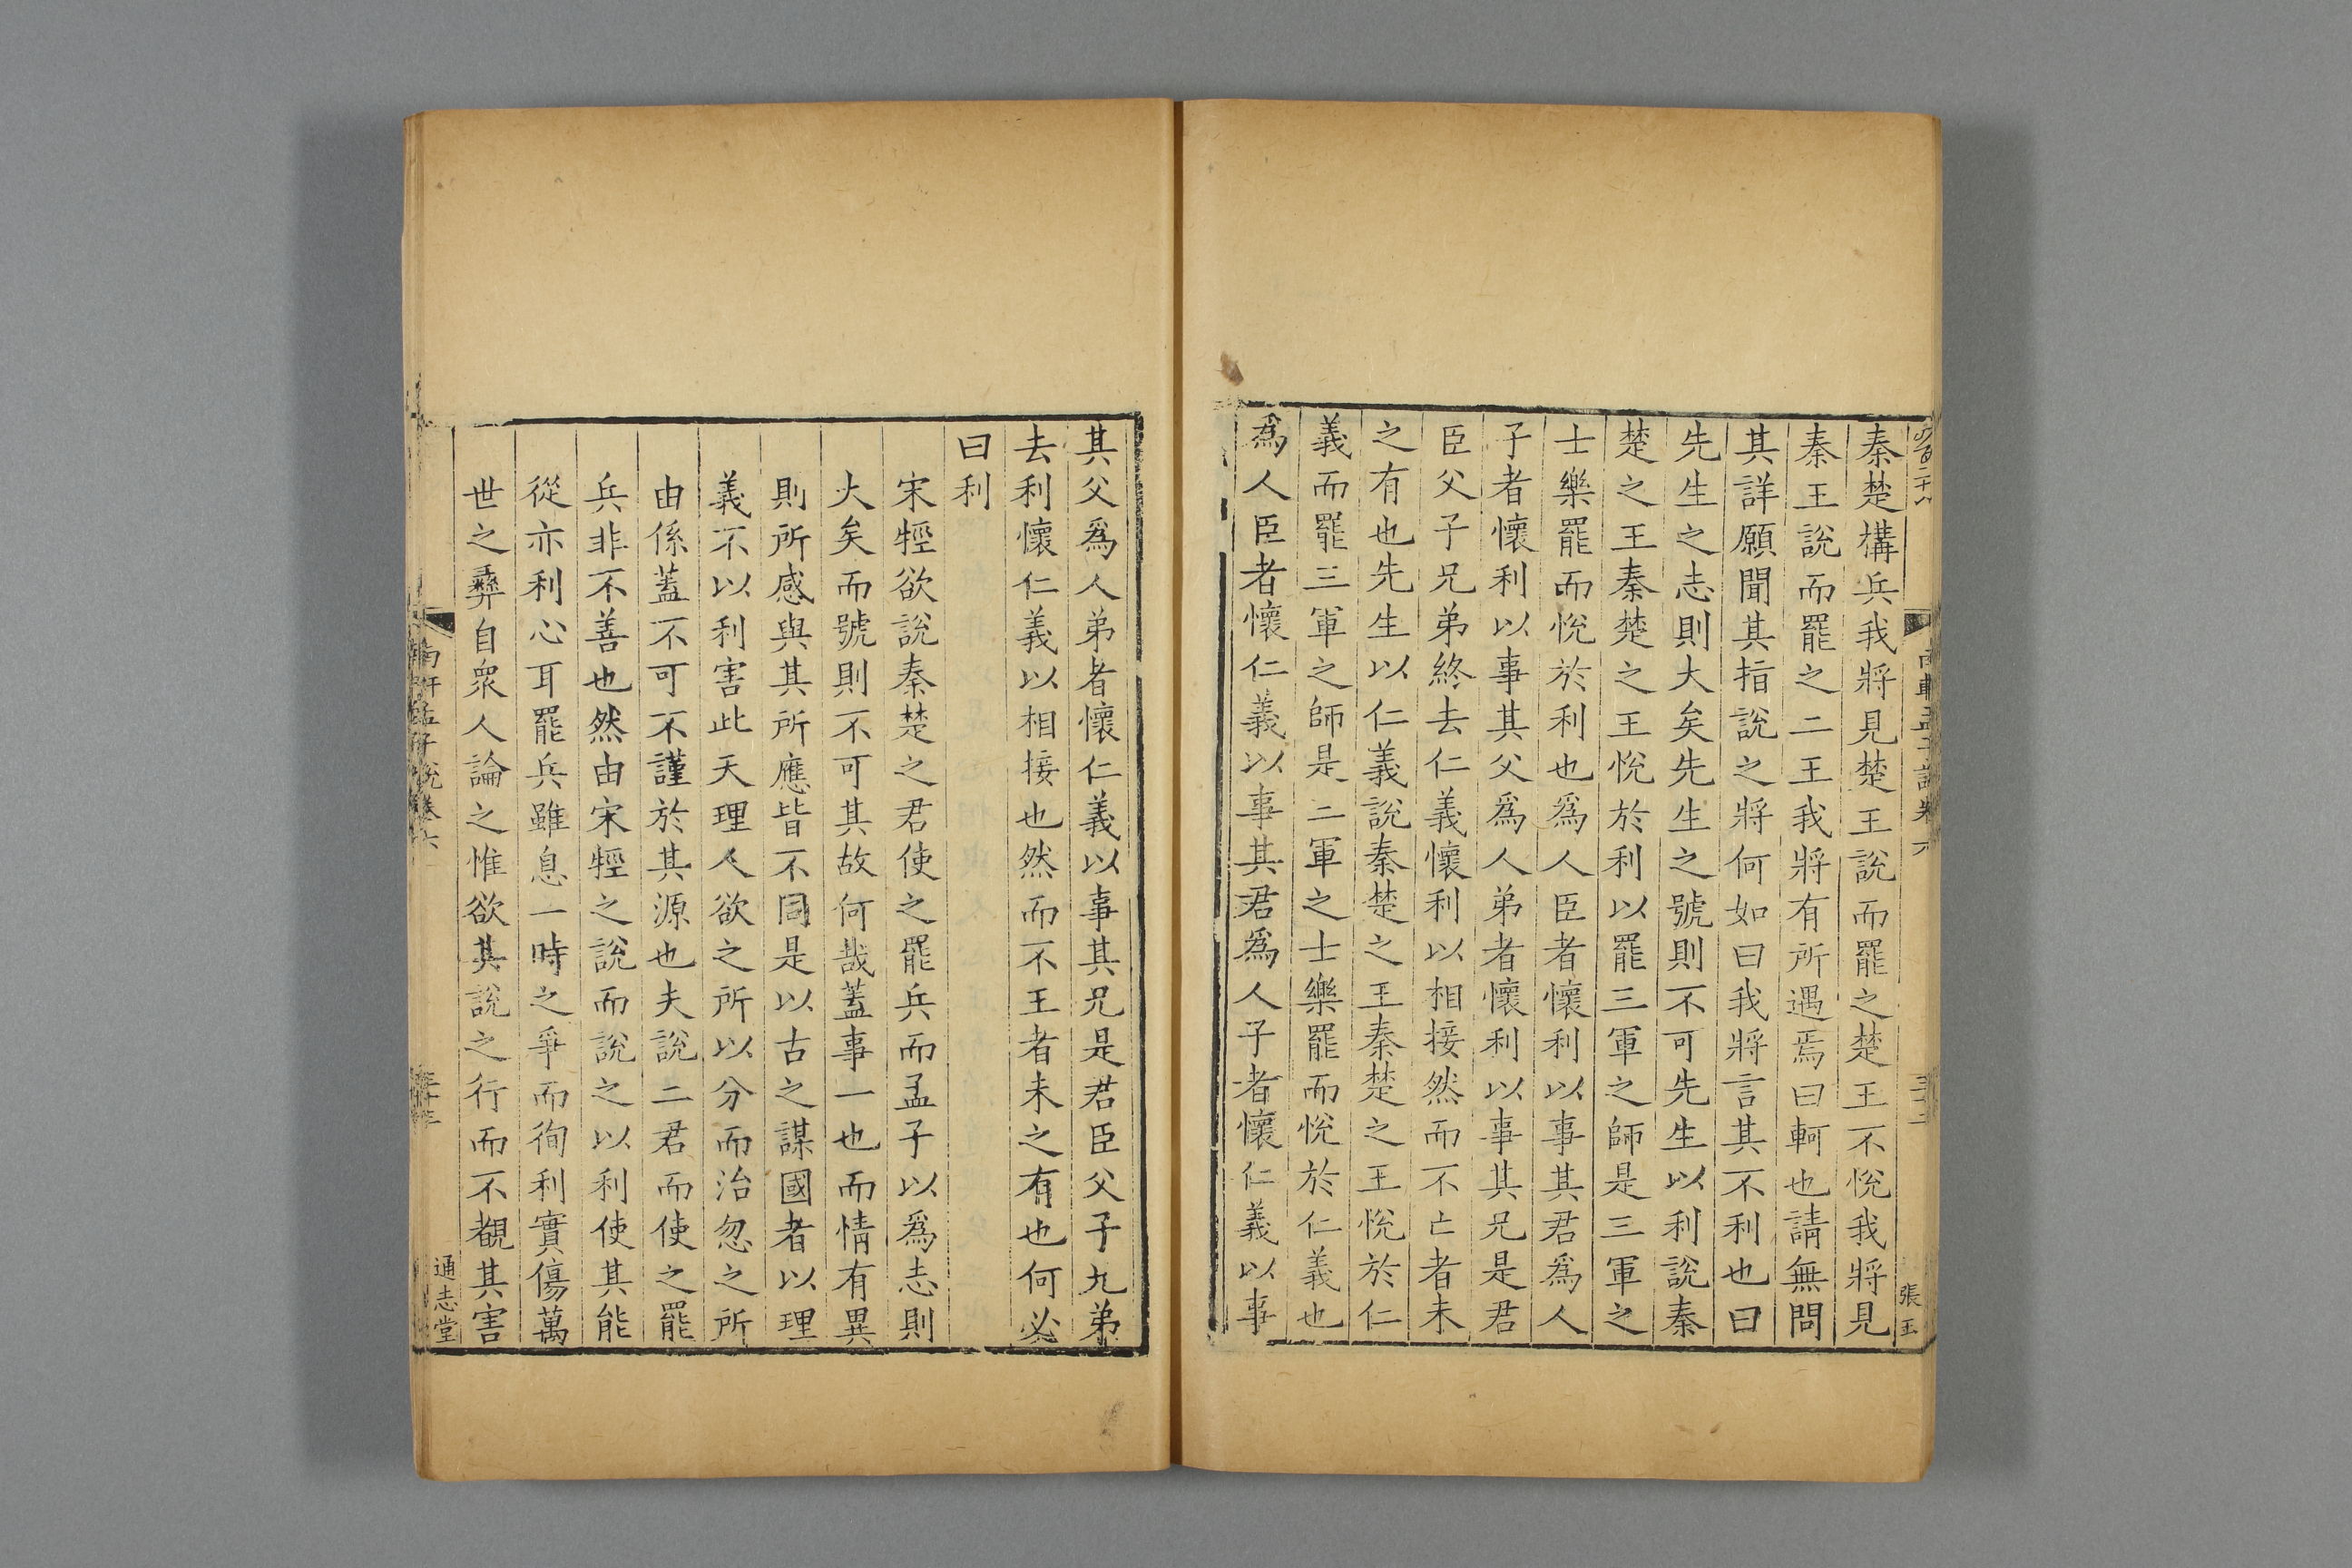 秦楚構兵我將見楚王說而罷之楚王不悅我將見
秦王說而罷之二王我將有所遇焉曰軻也請無問
其詳願聞其指說之將何如曰我將言其不利也曰
先生之志則大矣先生之號則不可先生以利說秦
楚之王秦楚之王悅於利以罷三軍之師是三軍之
士樂罷而悅於利也爲人臣者懷利以事其君爲人
子者懷利以事其父爲人弟者懷利以事其兄是君
臣父子兄弟終去仁義懷利以相接然而不亡者未
之有也先生以仁義說秦楚之王秦楚之王悅於仁
義而罷三軍之師是三軍之士樂罷而悅於仁義也
爲人臣者懷仁義以事其君爲人子者懷仁義以事
張玉
其父爲人弟者懷仁義以事其兄是君臣父子兄弟
去利懷仁義以相接也然而不王者未之有也何必
曰利
宋牼欲說秦楚之君使之罷兵而孟子以爲志則
大矣而號則不可其故何哉蓋事一也而情有異
則所感與其所應皆不同是以古之謀國者以理
義不以利害此天理人欲之所以分而治忽之所
由係蓋不可不謹於其源也夫說二君而使之罷
兵非不善也然由宋牼之說而說之以利使其能
從亦利心耳罷兵雖息一時之爭而徇利實傷萬
世之彞自衆人論之惟欲其說之行而不覩其害
南軒孟子說卷六
通志堂